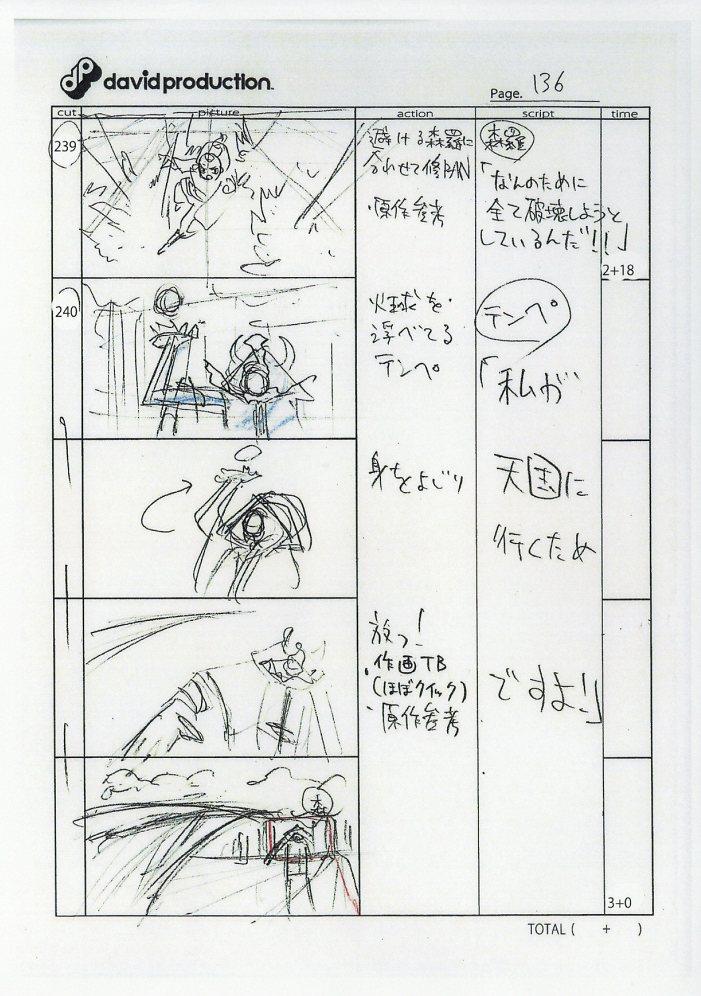 davidproduction
Page. 136
cut picture action script time
239
避ける森羅に
合わせて修PAN
・原作参考
森羅
「なんのために
全て破壊しようと
しているんだ!!」
2+18
240
火球を
浮べてる
テンペ
テンペ
「私が
身をよじり
天国に
行くため
放つ!
・作画TB
(ほぼクイック)
・原作参考
ですよ!」
森
3+0
TOTAL ( + )